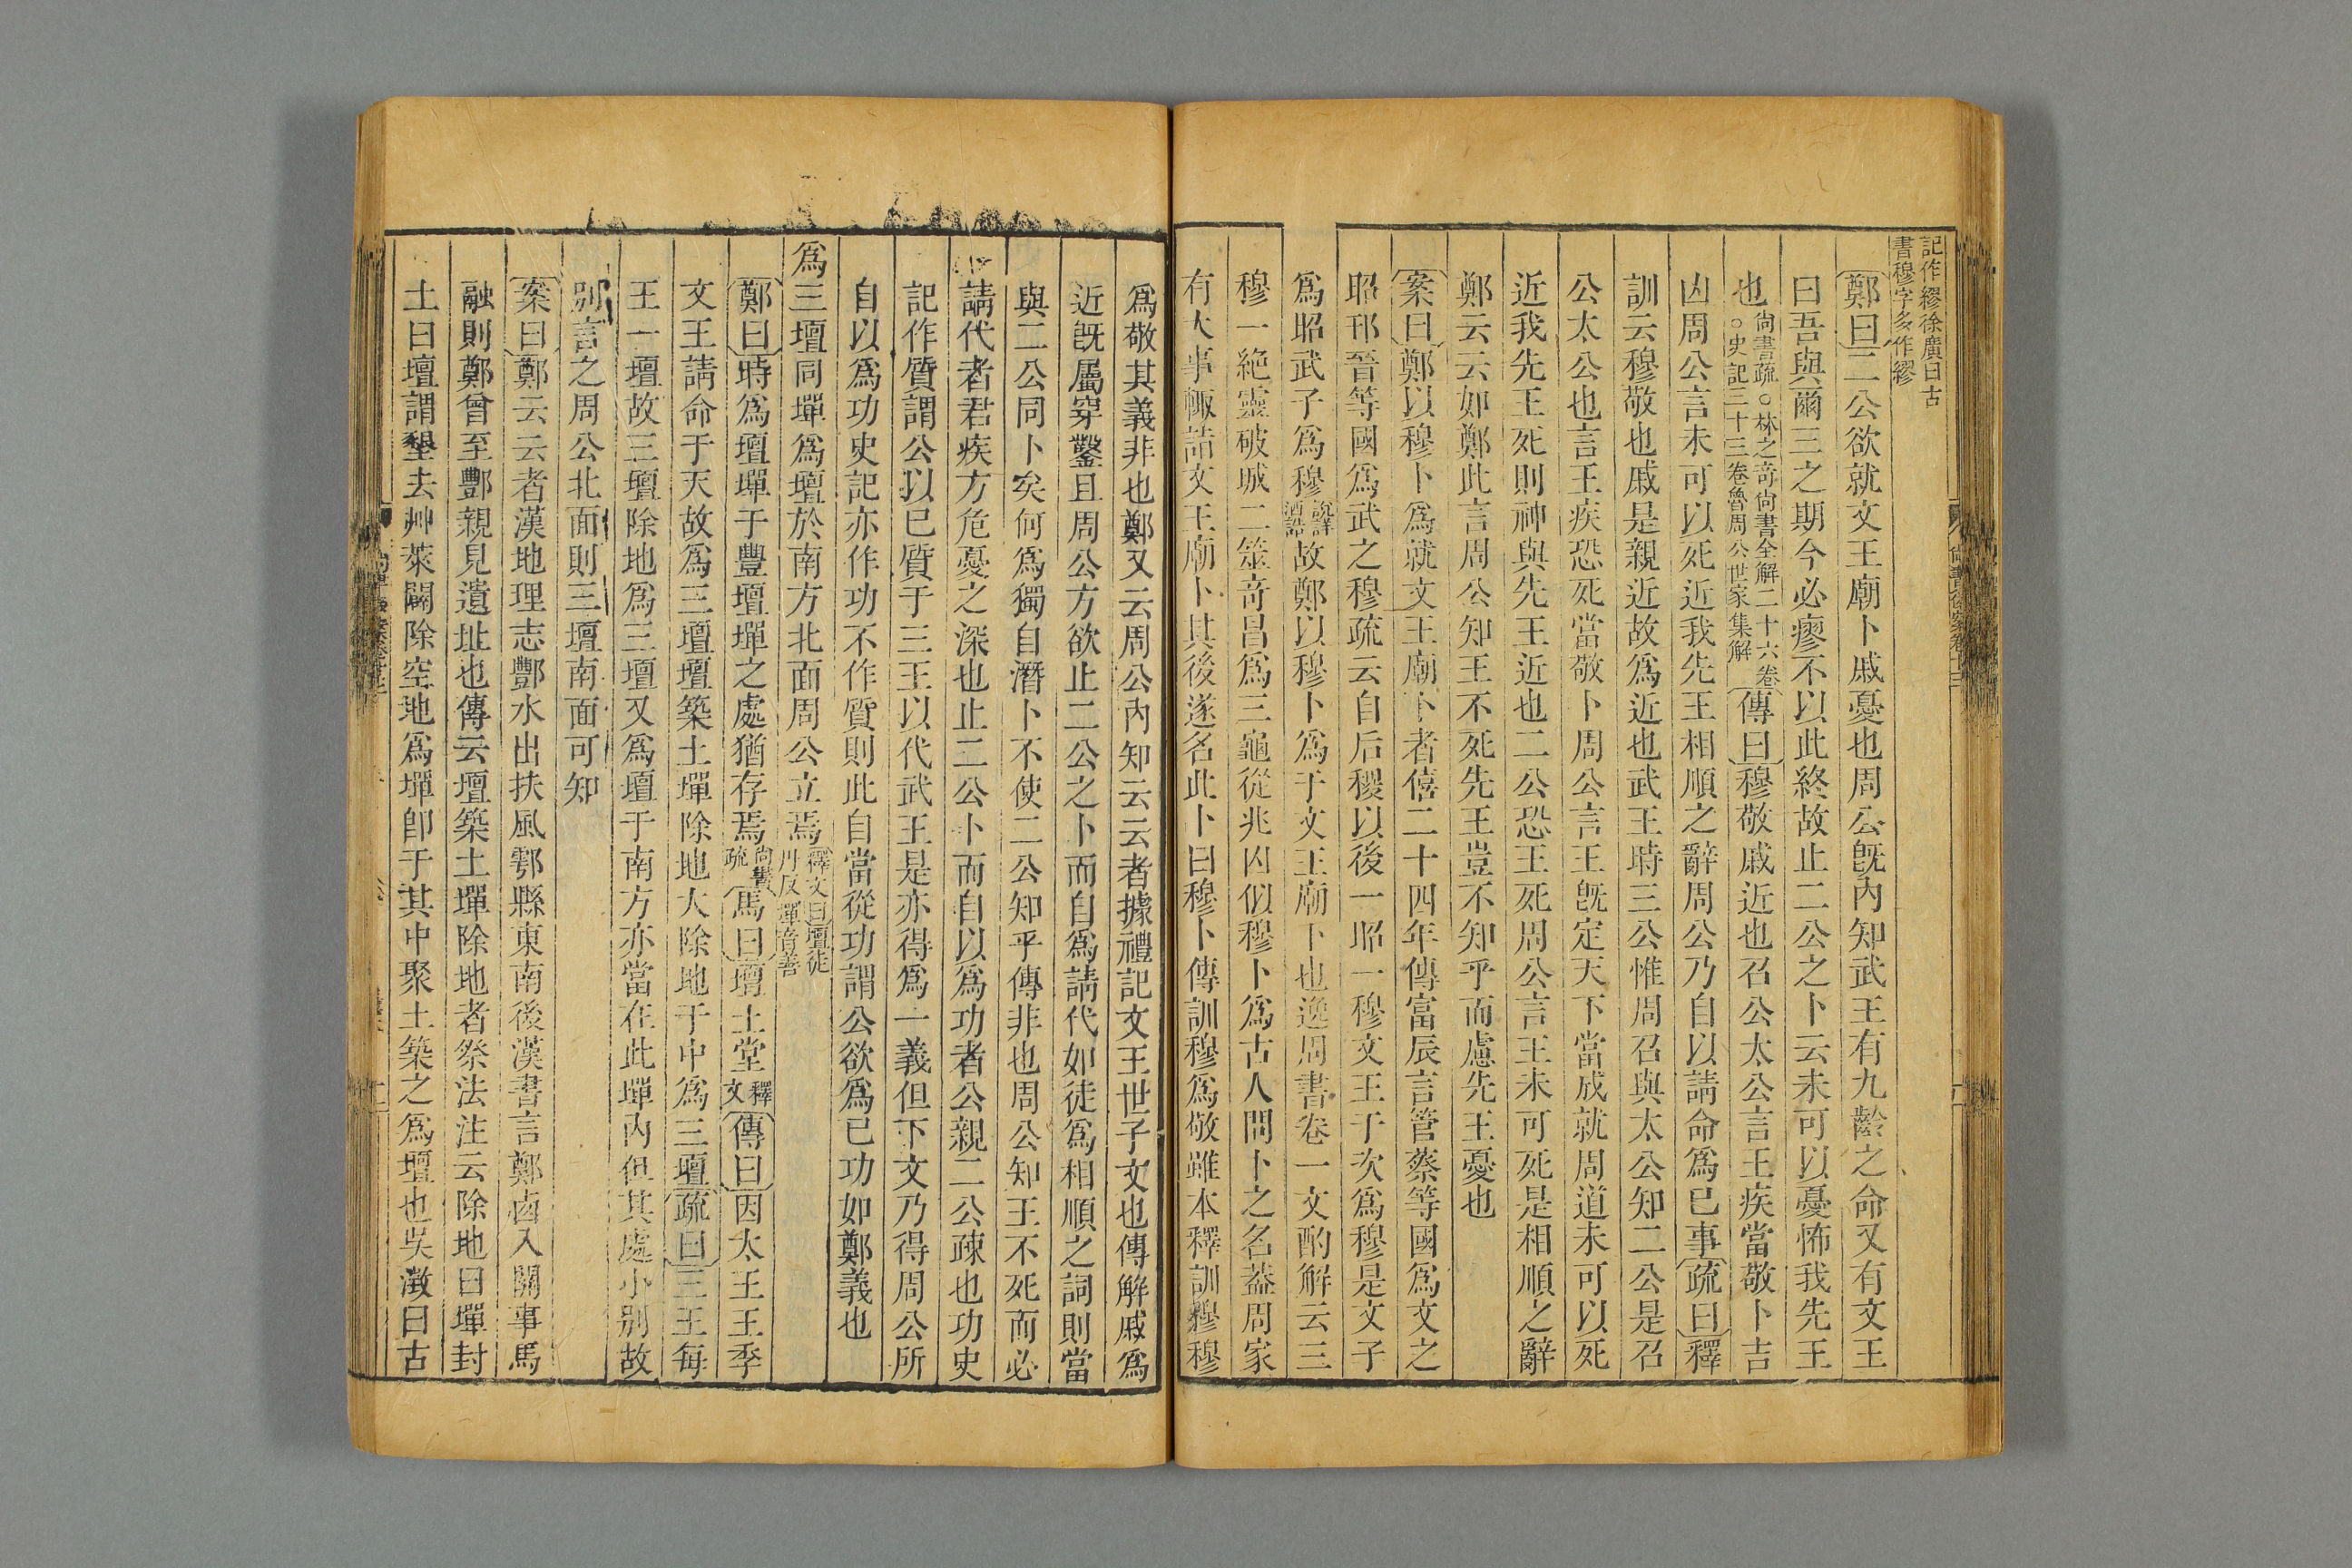 記作繆徐廣曰古
書穆字多作繆
鄭曰二公欲就文王廟卜戚憂也周公既內知武王有九齡之命又有文王
曰吾與爾三之期今必瘳不以此終故止二公之卜云未可以憂怖我先王
也尙書疏○林之竒尙書全解二十六卷○史記三十三卷魯周公世家集解傳曰穆敬戚近也召公太公言王疾當敬卜吉
凶周公言未可以死近我先王相順之辭周公乃自以請命爲已事疏曰釋
訓云穆敬也戚是親近故爲近也武王時三公惟周召與太公知二公是召
公太公也言王疾恐死當敬卜周公言王旣定天下當成就周道未可以死
近我先王死則神與先王近也二公恐王死周公言王未可死是相順之辭
鄭云云如鄭此言周公知王不死先王豈不知乎而慮先王憂也
案曰鄭以穆卜爲就文王廟卜者僖二十四年傳富辰言管蔡等國爲文之
昭邘晉等國爲武之穆疏云自后稷以後一昭一穆文王于次爲穆是文子
爲昭武子爲穆說詳酒誥故鄭以穆卜爲于文王廟卜也逸周書卷一文酌解云三
穆一絶靈破城二筮竒昌爲三龜從兆凶似穆卜爲古人問卜之名葢周家
有大事輒詰文王廟卜其後遂名此卜曰穆卜傳訓穆爲敬雖本釋訓穆穆
爲敬其義非也鄭又云周公內知云云者據禮記文王世子文也傳解戚爲
近旣屬穿鑿且周公方欲止二公之卜而自爲請代如徒爲相順之詞則當
與二公同卜矣何爲獨自潛卜不使二公知乎傳非也周公知王不死而必
請代者君疾方危憂之深也止二公卜而自以爲功者公親二公疎也功史
記作質謂公以已質于三王以代武王是亦得爲一義但下文乃得周公所
自以爲功史記亦作功不作質則此自當從功謂公欲爲已功如鄭義也
爲三壇同墠爲壇於南方北面周公立焉釋文曰壇徒丹反墠音善
鄭曰時爲壇墠于豐壇墠之處猶存焉尙書疏馬曰壇土堂釋文傳曰因太王王季
文王請命于天故爲三壇壇築土墠除地大除地于中爲三壇疏曰三王每
王一壇故三壇除地爲三壇又爲壇于南方亦當在此墠內但其處小别故
别言之周公北面則三壇南面可知
案曰鄭云云者漢地理志酆水出扶風鄠縣東南後漢書言鄭㢴入關事馬
融則鄭曾至酆親見遺址也傳云壇築土墠除地者祭法注云除地曰墠封
土曰壇謂墾去艸萊闢除空地爲墠卽于其中聚土築之爲壇也吳澂曰古